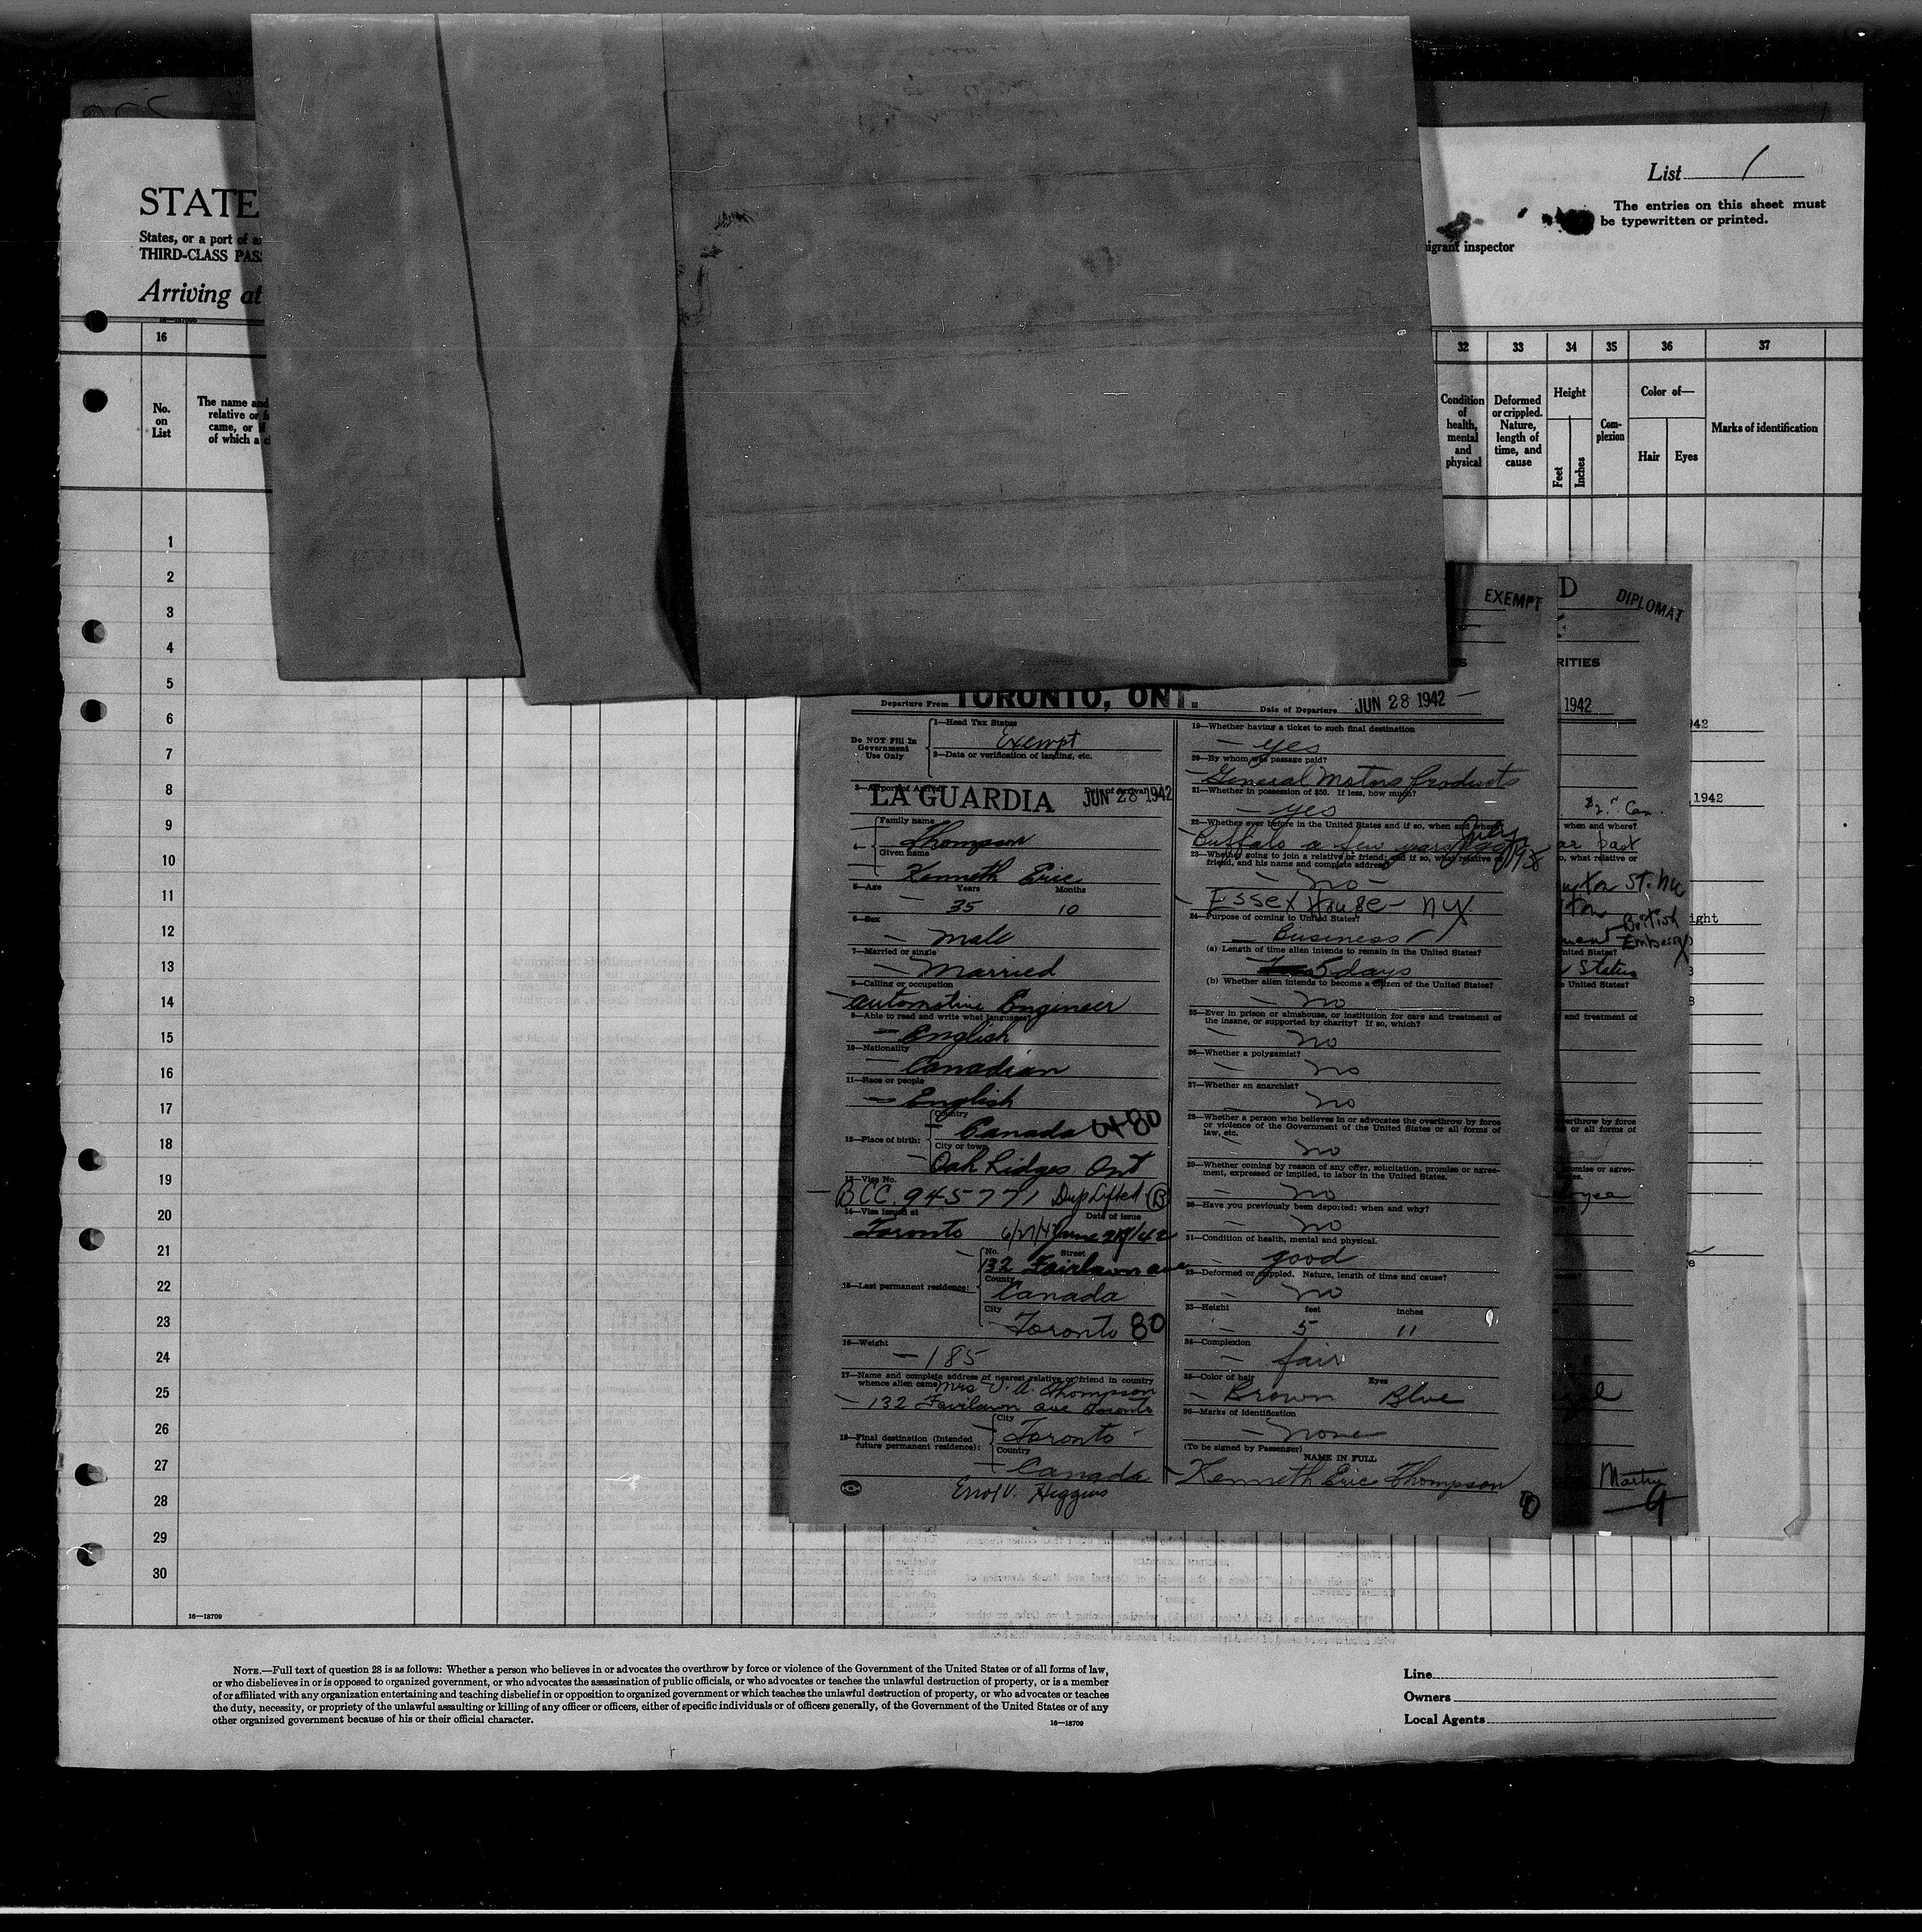 List 1
The entries on this sheet must
be typewritten or printed.
STATE
States, or a port of
THIRD-CLASS PAS
Arriving at
igrant inspector
16
32 33 34 35 36 37
No.
on
List
The name and
relative or
came, or
of which a
Condition
of
health,
mental
and
physical
Deformed
or crippled.
Nature,
length of
time, and
cause
Height
Feet
Inches
Com-
plexion
Color of—
Hair
Eyes
Marks of identification
1
2
3
4
5
6
7
8
9
10
11
12
13
14
15
16
17
18
19
20
21
22
23
24
25
26
27
28
29
30
16—18709
EXEMPT
Departure From TORONTO, ONT.
Date of Departure JUN 28 1942
Do NOT Fill In
Government
Use Only
1—Head Tax Status
Exempt
2—Data or verification of landing, etc.
3—Airport of Arrival
LA GUARDIA JUN 28 1942
4—
Family name
Thompson
Given name
Kenneth Eric
5—Age Years Months
35 10
6—Sex
Male
7—Married or single
Married
8—Calling or occupation
Automotive Engineer
9—Able to read and write what languages?
English
10—Nationality
Canadian
11—Race or people
English
12—Place of birth:
Country
Canada 80
City or town
Oak Ridges Ont
13—Visa No.
BCC. 945771 Dup Lifted B
14—Visa issued at Date of issue
Toronto
15—Last permanent residence:
No. Street
132 Fairlawn ave
County
Canada
City
Toronto 80
16—Weight
185
17—Name and complete address of nearest relative or friend in country
whence alien came
Mrs V. A. Thompson
132 Fairlawn ave Toronto
18—Final destination (Intended
future permanent residence):
City
Toronto
Country
Canada
Errol V. Higgins
19—Whether having a ticket to such final destination
yes
20—By whom was passage paid?
General Motors Products
21—Whether in possession of $50. If less, how much?
yes
22—Whether ever before in the United States and if so, when and where?
Buffalo a few years ago July
23—Whether going to join a relative or friend; and if so, what relative or
friend, and his name and complete address
no
Essex House - NY
24—Purpose of coming to United States?
Business
(a) Length of time alien intends to remain in the United States?
5 days
(b) Whether alien intends to become a citizen of the United States?
no
25—Ever in prison or almshouse, or institution for care and treatment of
the insane, or supported by charity? If so, which?
no
26—Whether a polygamist?
no
27—Whether an anarchist?
no
28—Whether a person who believes in or advocates the overthrow by force
or violence of the Government of the United States or all forms of
law, etc.
no
29—Whether coming by reason of any offer, solicitation, promise or agree-
ment, expressed or implied, to labor in the United States.
no
30—Have you previously been deported; when and why?
no
31—Condition of health, mental and physical.
good
32—Deformed or crippled. Nature, length of time and cause?
no
33—Height feet inches
5 11
34—Complexion
fair
35—Color of hair Eyes
Brown Blue
36—Marks of identification
none
(To be signed by Passenger)
NAME IN FULL
Kenneth Eric Thompson
D
DIPLOMAT
RITIES
1942
42
1942
when and where?
o, what relative or
St. NW
British
Embassy
ight
United States?
States
United States?
and treatment of
erthrow by force
or all forms of
omise or agree-
es.
Martin
9
NOTE.—Full text of question 28 is as follows: Whether a person who believes in or advocates the overthrow by force or violence of the Government of the United States or of all forms of law,
or who disbelieves in or is opposed to organized government, or who advocates the assassination of public officials, or who advocates or teaches the unlawful destruction of property, or is a member
of or affiliated with any organization entertaining and teaching disbelief in or opposition to organized government or which teaches the unlawful destruction of property, or who advocates or teaches
the duty, necessity, or propriety of the unlawful assaulting or killing of any officer or officers, either of specific individuals or of officers generally, of the Government of the United States or of any
other organized government because of his or their official character.
16—18709
Line
Owners
Local Agents